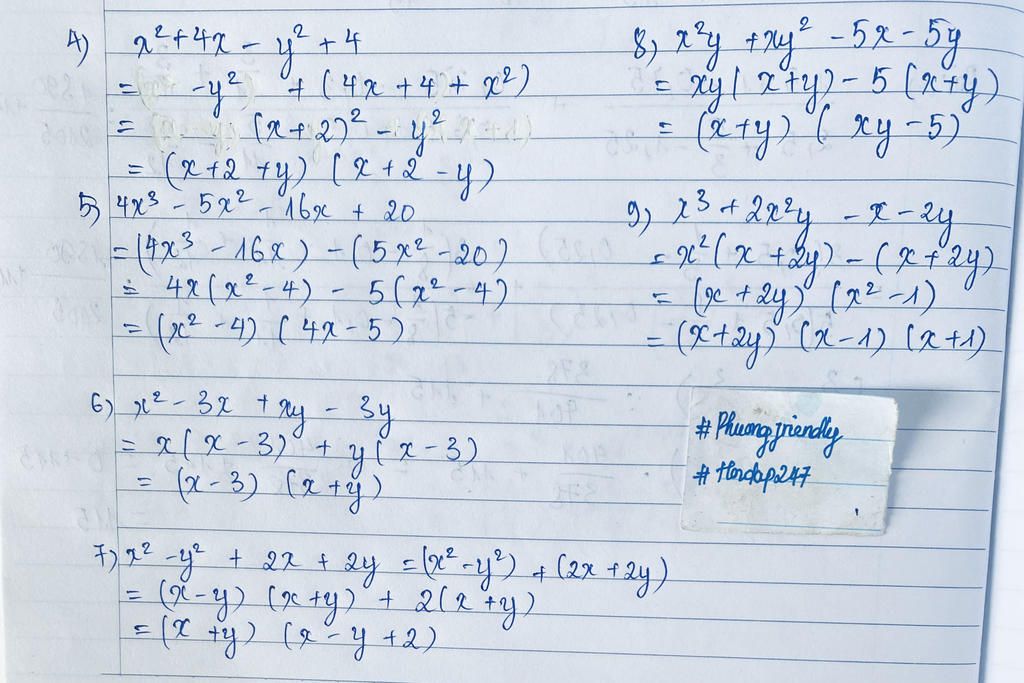 4) x² + 4x - y² + 4
= -y² + (4x + 4 + x²)
= (x+2)² - y²
= (x+2+y) (x+2-y)
5) 4x³ - 5x² - 16x + 20
= (4x³ - 16x) - (5x² - 20)
= 4x(x² - 4) - 5(x² - 4)
= (x² - 4) (4x - 5)
6) x² - 3x + xy - 3y
= x(x - 3) + y(x - 3)
= (x - 3) (x + y)
7) x² - y² + 2x + 2y = (x² - y²) + (2x + 2y)
= (x - y) (x + y) + 2(x + y)
= (x + y) (x - y + 2)
8) x²y + xy² - 5x - 5y
= xy(x+y) - 5(x+y)
= (x+y) (xy - 5)
9) x³ + 2x²y - x - 2y
= x²(x + 2y) - (x + 2y)
= (x + 2y) (x² - 1)
= (x + 2y) (x - 1) (x + 1)
# Phuongfriendly
# Hoidap247